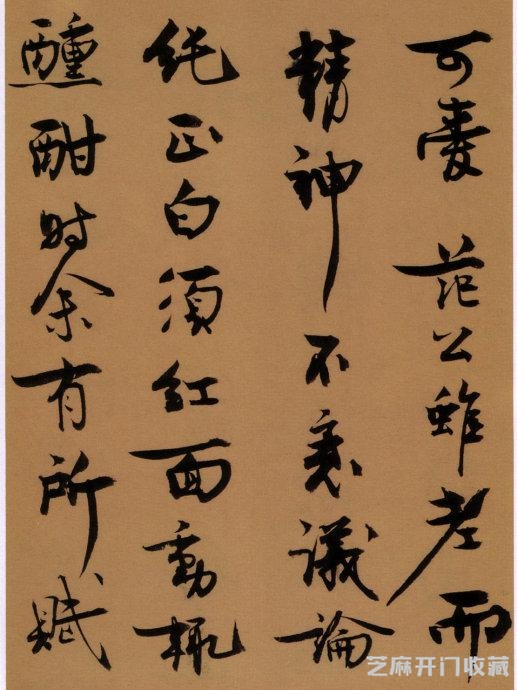 可爱 范公虽老而
精神不衰议論
纯正白须红面動輒
醺酣时余有所赋
芝麻开门收藏